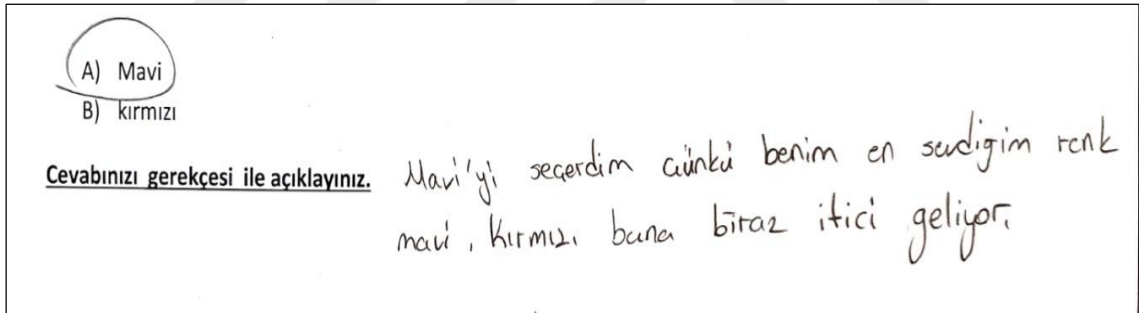 A) Mavi
B) kırmızı
Cevabınızı gerekçesi ile açıklayınız. Mavi'yi seçerdim çünkü benim en sevdiğim renk
mavi, kırmızı bana biraz itici geliyor.